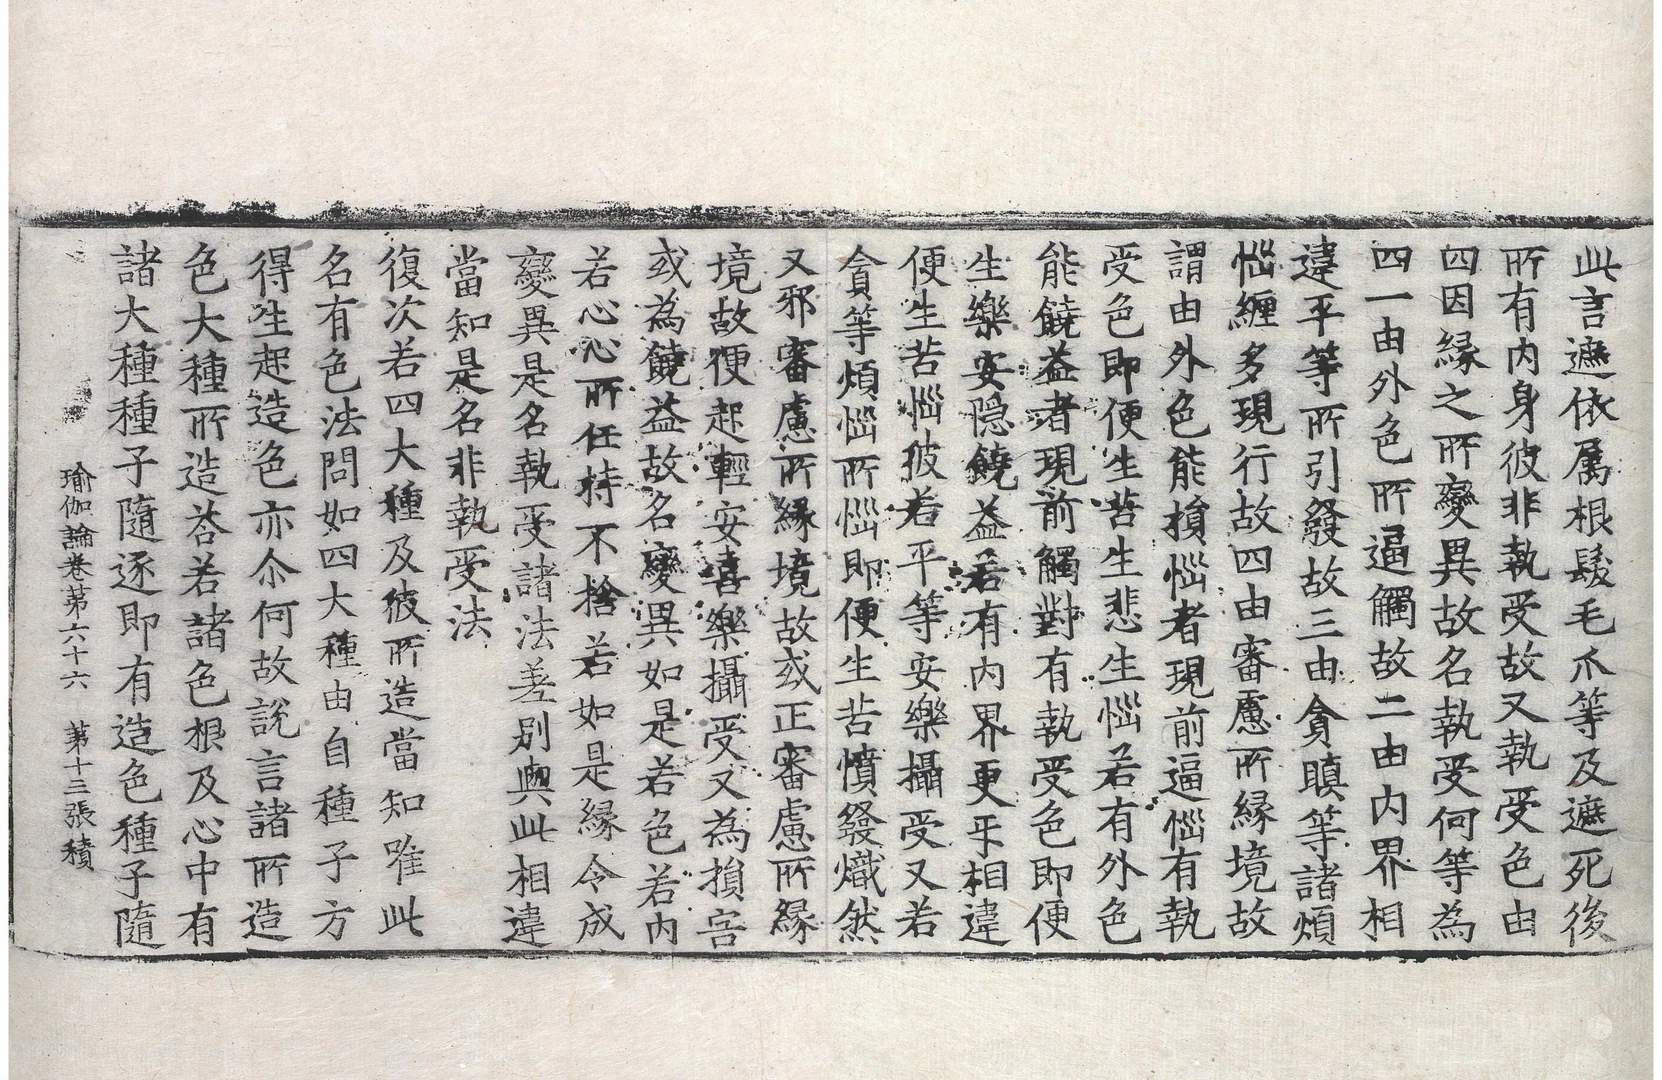 此言遮依属根髮毛爪等及遮死後
所有内身彼非執受故又執受色由
四因縁之所變異故名執受何等為
四一由外色所逼觸故二由内界相
違平等所引發故三由貪瞋等諸煩
惱纏多現行故四由審慮所縁境故
謂由外色能損惱者現前逼惱有執
受色即便生苦生悲生惱若有外色
能饒益者現前觸對有執受色即便
生樂安隠饒益若有内界更㸦相違
便生苦惱彼若平等安樂攝受又若
貪等煩惱所惱即便生苦憤發熾然
又邪審慮所縁境故或正審慮所縁
境故便起輕安喜樂攝受又為損害
或為饒益故名變異如是若色若内
若心心所任持不捨若如是縁令成
變異是名執受諸法差别與此相違
當知是名非執受法
復次若四大種及彼所造當知唯此
名有色法問如四大種由自種子方
得生起造色亦尒何故說言諸所造
色大種所造荅若諸色根及心中有
諸大種種子隨逐即有造色種子隨
瑜伽論卷第六十六 第十三張積